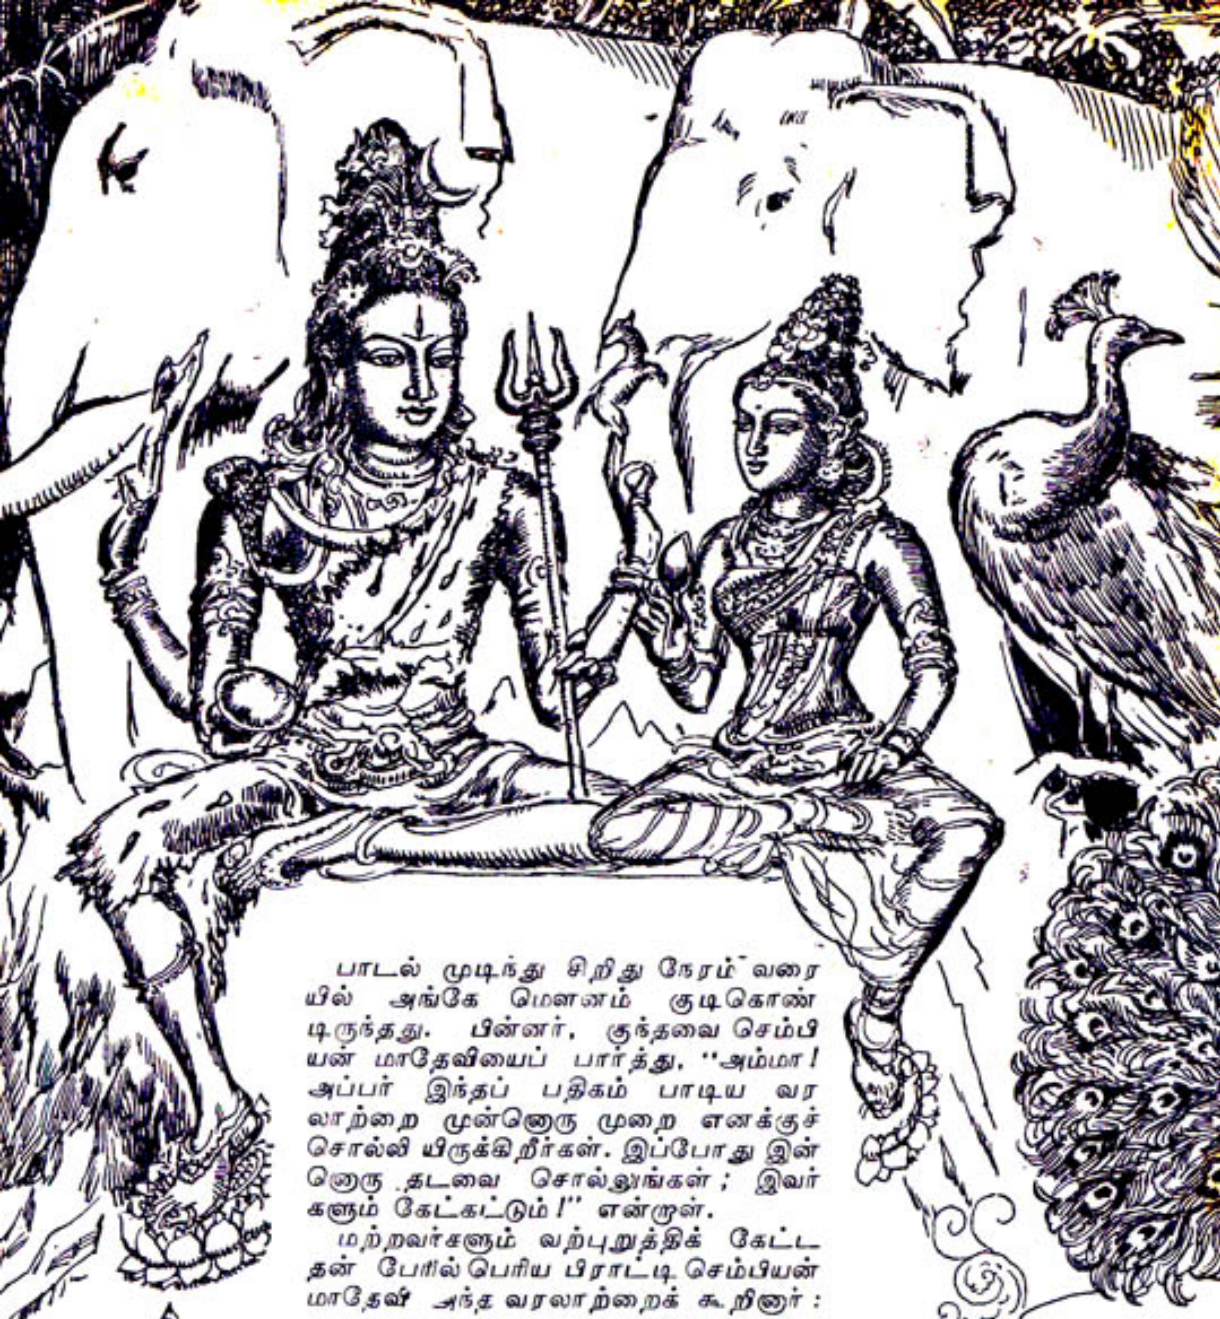 பாடல் முடிந்து சிறிது நேரம் வரை
யில் அங்கே மௌனம் குடிகொண்
டிருந்தது. பின்னர், குந்தவை செம்பி
யன் மாதேவியைப் பார்த்து, "அம்மா!
அப்பர் இந்தப் பதிகம் பாடிய வர
லாற்றை முன்னொரு முறை எனக்குச்
சொல்லி யிருக்கிறீர்கள். இப்போது இன்
னொரு தடவை சொல்லுங்கள்; இவர்
களும் கேட்கட்டும்!" என்றாள்.
மற்றவர்களும் வற்புறுத்திக் கேட்ட
தன் பேரில் பெரிய பிராட்டி செம்பியன்
மாதேவி அந்த வரலாற்றைக் கூறினார்: